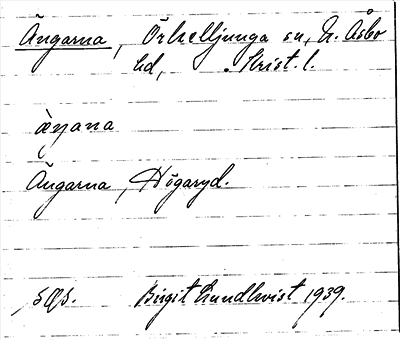 Ängarna, Örkelljunga sn, N. Åsbo
hd, Krist. l.
Ängarna, Högaryd.
Birgit Lundkvist 1939.